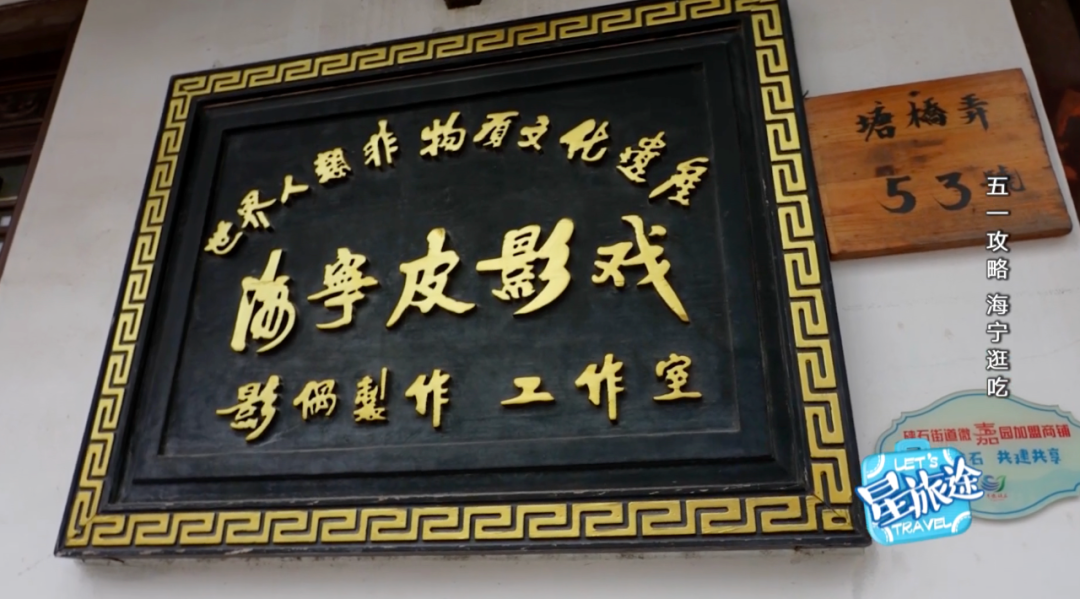 世界人類非物质文化遺産
海寧皮影戏
影偶製作 工作室
塘橋弄
53號
五一攻略 海宁逛吃
硖石街道微嘉园加盟商铺
石 共建共享
LET'S
星旅途
TRAVEL